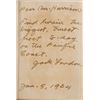 Dear Mr. Harrison:
Find herein the
biggest, truest
poet to-day
on the Pacific
Coast.
Jack London
Jan. 5, 1904